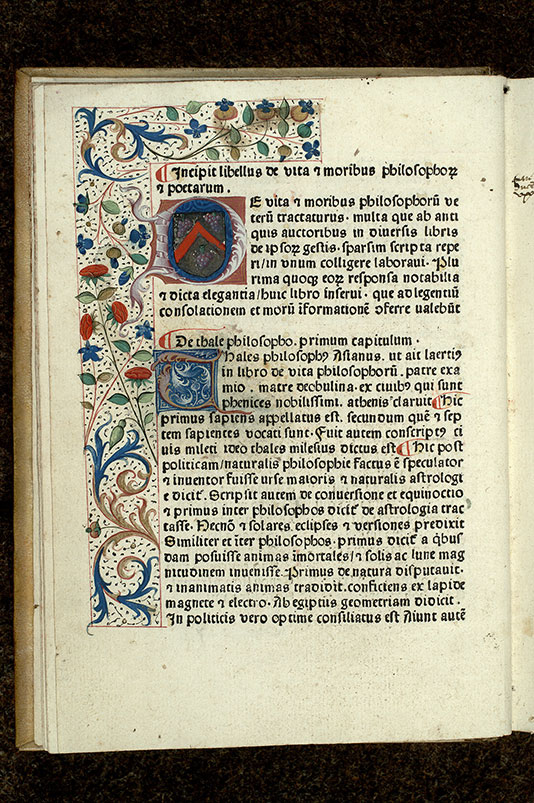 Incipit libellus de vita ⁊ moribus philosophoꝝ
⁊ poetarum .
DE vita ⁊ moribus philosophoꝝ ve
terū tractaturus · multa que ab anti
quis auctoribus in diversis libris
de ipsoꝝ gestis · sparsim scripta repe
ri/in vnum colligere laboravi · Plu
rima quoqꝫ eoꝝ responsa notabilia
⁊ dicta elegantia/huic libro inserui · que ad legentiū
consolationem et morū īformationē oferre valebūt
De thale philosopho . primum capitulum .
Thales philosophꝯ Asianus . ut ait laertiꝯ
in libro de vita philosophorū . patre exa
mio . matre cleobulina · ex ciuibꝯ qui sunt
phenices nobilissimi . athenis claruit Hic
primus sapiens appellatus est . secundum quē ⁊ sep
tem sapientes vocati sunt · Fuit autem conscriptꝯ ci
uis mileti ideo thales milesius dictus est Hic post
politicam/naturalis philosophie factus ē speculator
⁊ inventor fuisse urse maioris ⁊ naturalis astrologi
e dicit̄ . Scripsit autem de conuersione et equinoctio
⁊ primus inter philosophos dicit̄ de astrologia trac
tasse . Necnō ⁊ solares eclipses ⁊ versiones predixit
Similiter et īter philosophos · primus dicit̄ a qbus
dam posuisse animas īmortales/⁊ solis ac lune mag
nitudinem inuenisse . Primus de natura disputauit ·
⁊ inanimatis animas tradidit . conficiens ex lapide
magnete ⁊ electro · Ab egiptiis geometriam didicit .
In politicis vero optime consiliatus est Aiunt autē